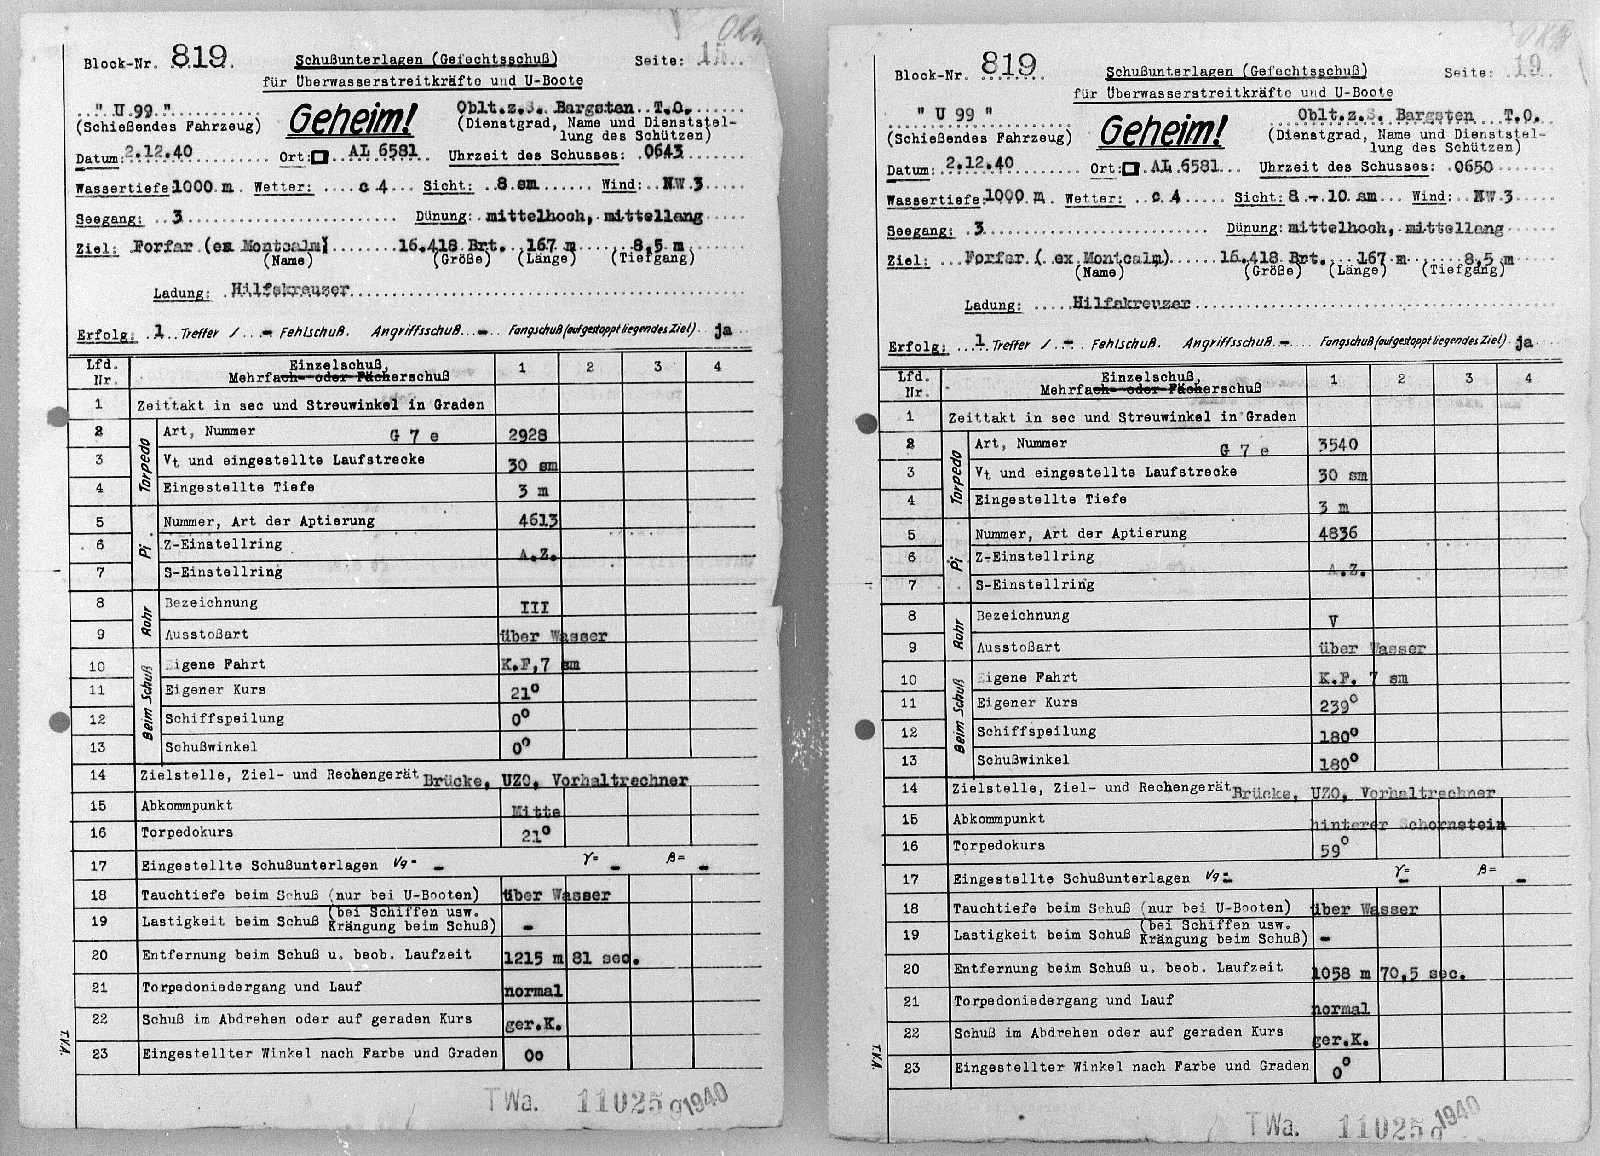 Block-Nr. 819
Schußunterlagen (Gefechtsschuß)
Seite: 15
für Überwasserstreitkräfte und U-Boote
" U 99 "
(Schießendes Fahrzeug)
Geheim!
Oblt.z.S. Bargsten T.O.
(Dienstgrad, Name und Dienststel-
lung des Schützen)
Datum: 2.12.40 Ort: AL 6581 Uhrzeit des Schusses: 0643
Wassertiefe 1000 m. Wetter: c 4 Sicht: 8 sm Wind: NW 3
Seegang: 3 Dünung: mittelhoch, mittellang
Ziel: Forfar (ex Montcalm) 16.418 Brt. 167 m 8,5 m
(Name) (Größe) (Länge) (Tiefgang)
Ladung: Hilfskreuzer
Erfolg: 1 Treffer / - Fehlschuß. Angriffsschuß - Fangschuß (aufgestoppt liegendes Ziel) ja
Lfd. Nr. Einzelschuß, 1 2 3 4
Mehrfach- oder Fächerschuß
1 Zeittakt in sec und Streuwinkel in Graden
Torpedo
2 Art, Nummer G 7 e 2928
3 Vt und eingestellte Laufstrecke 30 sm
4 Eingestellte Tiefe 3 m
Pi
5 Nummer, Art der Aptierung 4613
6 Z-Einstellring A.Z.
7 S-Einstellring
Rohr
8 Bezeichnung III
9 Ausstoßart über Wasser
Beim Schuß
10 Eigene Fahrt K.F,7 sm
11 Eigener Kurs 21°
12 Schiffspeilung 0°
13 Schußwinkel 0°
14 Zielstelle, Ziel- und Rechengerät Brücke, UZO, Vorhaltrechner
15 Abkommpunkt Mitte
16 Torpedokurs 21°
17 Eingestellte Schußunterlagen Vg= - γ= - β= -
18 Tauchtiefe beim Schuß (nur bei U-Booten) über Wasser
19 Lastigkeit beim Schuß (bei Schiffen usw. Krängung beim Schuß) -
20 Entfernung beim Schuß u. beob. Laufzeit 1215 m 81 sec.
21 Torpedoniedergang und Lauf normal
22 Schuß im Abdrehen oder auf geraden Kurs ger.K.
23 Eingestellter Winkel nach Farbe und Graden 0o
T.V.A.
TWa. 11025 g 1940
Block-Nr. 819
Schußunterlagen (Gefechtsschuß)
Seite: 19
für Überwasserstreitkräfte und U-Boote
" U 99 "
(Schießendes Fahrzeug)
Geheim!
Oblt.z.S. Bargsten T.O.
(Dienstgrad, Name und Dienststel-
lung des Schützen)
Datum: 2.12.40 Ort: AL 6581 Uhrzeit des Schusses: 0650
Wassertiefe: 1000 m Wetter: c 4 Sicht: 8 - 10 sm Wind: NW 3
Seegang: 3 Dünung: mittelhoch, mittellang
Ziel: Forfar ( ex Montcalm) 16.418 Brt. 167 m 8,5 m
(Name) (Größe) (Länge) (Tiefgang)
Ladung: Hilfskreuzer
Erfolg: 1 Treffer / - Fehlschuß. Angriffsschuß - Fangschuß (aufgestoppt liegendes Ziel) ja
Lfd. Nr. Einzelschuß, 1 2 3 4
Mehrfach- oder Fächerschuß
1 Zeittakt in sec und Streuwinkel in Graden
Torpedo
2 Art, Nummer G 7 e 3540
3 Vt und eingestellte Laufstrecke 30 sm
4 Eingestellte Tiefe 3 m
Pi
5 Nummer, Art der Aptierung 4836
6 Z-Einstellring A.Z.
7 S-Einstellring
Rohr
8 Bezeichnung V
9 Ausstoßart über Wasser
Beim Schuß
10 Eigene Fahrt K.F. 7 sm
11 Eigener Kurs 239°
12 Schiffspeilung 180°
13 Schußwinkel 180°
14 Zielstelle, Ziel- und Rechengerät Brücke, UZO, Vorhaltrechner
15 Abkommpunkt hinterer Schornstein
16 Torpedokurs 59°
17 Eingestellte Schußunterlagen Vg= - γ= - β= -
18 Tauchtiefe beim Schuß (nur bei U-Booten) über Wasser
19 Lastigkeit beim Schuß (bei Schiffen usw. Krängung beim Schuß) -
20 Entfernung beim Schuß u. beob. Laufzeit 1058 m 70,5 sec.
21 Torpedoniedergang und Lauf normal
22 Schuß im Abdrehen oder auf geraden Kurs ger.K.
23 Eingestellter Winkel nach Farbe und Graden 0°
T.V.A.
TWa. 11025 g 1940